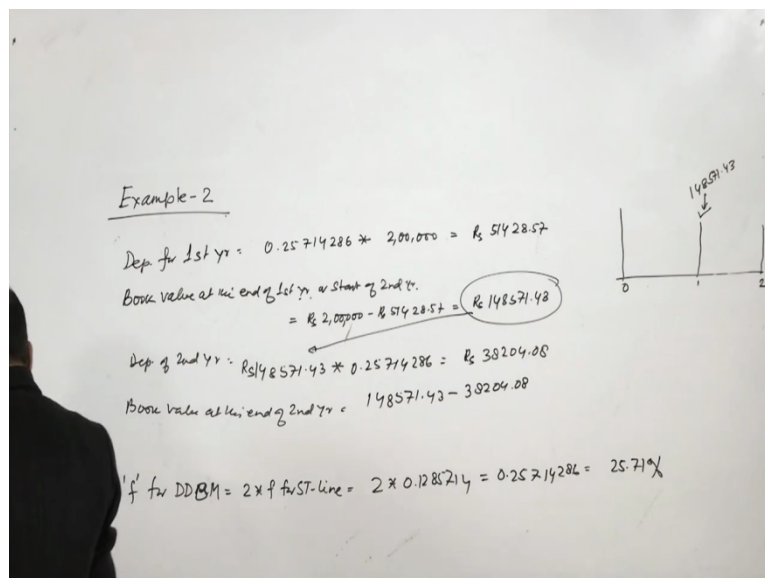 Example-2
Dep. for 1st yr = 0.25714286 * 2,00,000 = Rs 51428.57
Book value at the end of 1st yr. or Start of 2nd yr.
= Rs 2,00,000 - Rs 51428.57 = Rs 148571.43
Dep of 2nd yr = Rs 148571.43 * 0.25714286 = Rs 38204.08
Book value at the end of 2nd yr = 148571.43 - 38204.08
'f' for DDBM = 2 x f for ST-line = 2 * 0.1285714 = 0.25714286 = 25.71%
148571.43
0 1 2